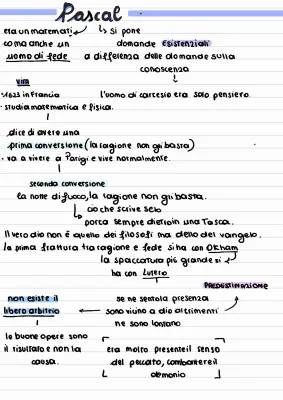 Pascal
era un matematico si pone
coma anche un domande esistenziali
uomo di fede a differenza delle domande sulla
conoscenza
vita
1623 in Francia l'uomo di carcesio era solo pensiero
studia matematica e fisica.
dice di avere una
prima conversione (la ragione non gli basta)
va a vivere a Parigi e vive normalmente.
seconda conversione
la notte di fuoco, la ragione non gli basta.
ciò che scrive se lo
porta sempre dietro in una Tasca.
Il vero dio non è quello dei filosofi ma dello del vangelo.
la prima frattura tra ragione e fede si ha con Okham
la spaccatura più grande si
ha con Lutero
PREDESTINAZIONE
non esiste il se ne senti la presenza
libero arbitrio sono vicino a dio altrimenti
ne sono lontano
le buone opere sono
il risultato e non la era molto presente il senso
causa. del peccato, combattere il
demonio